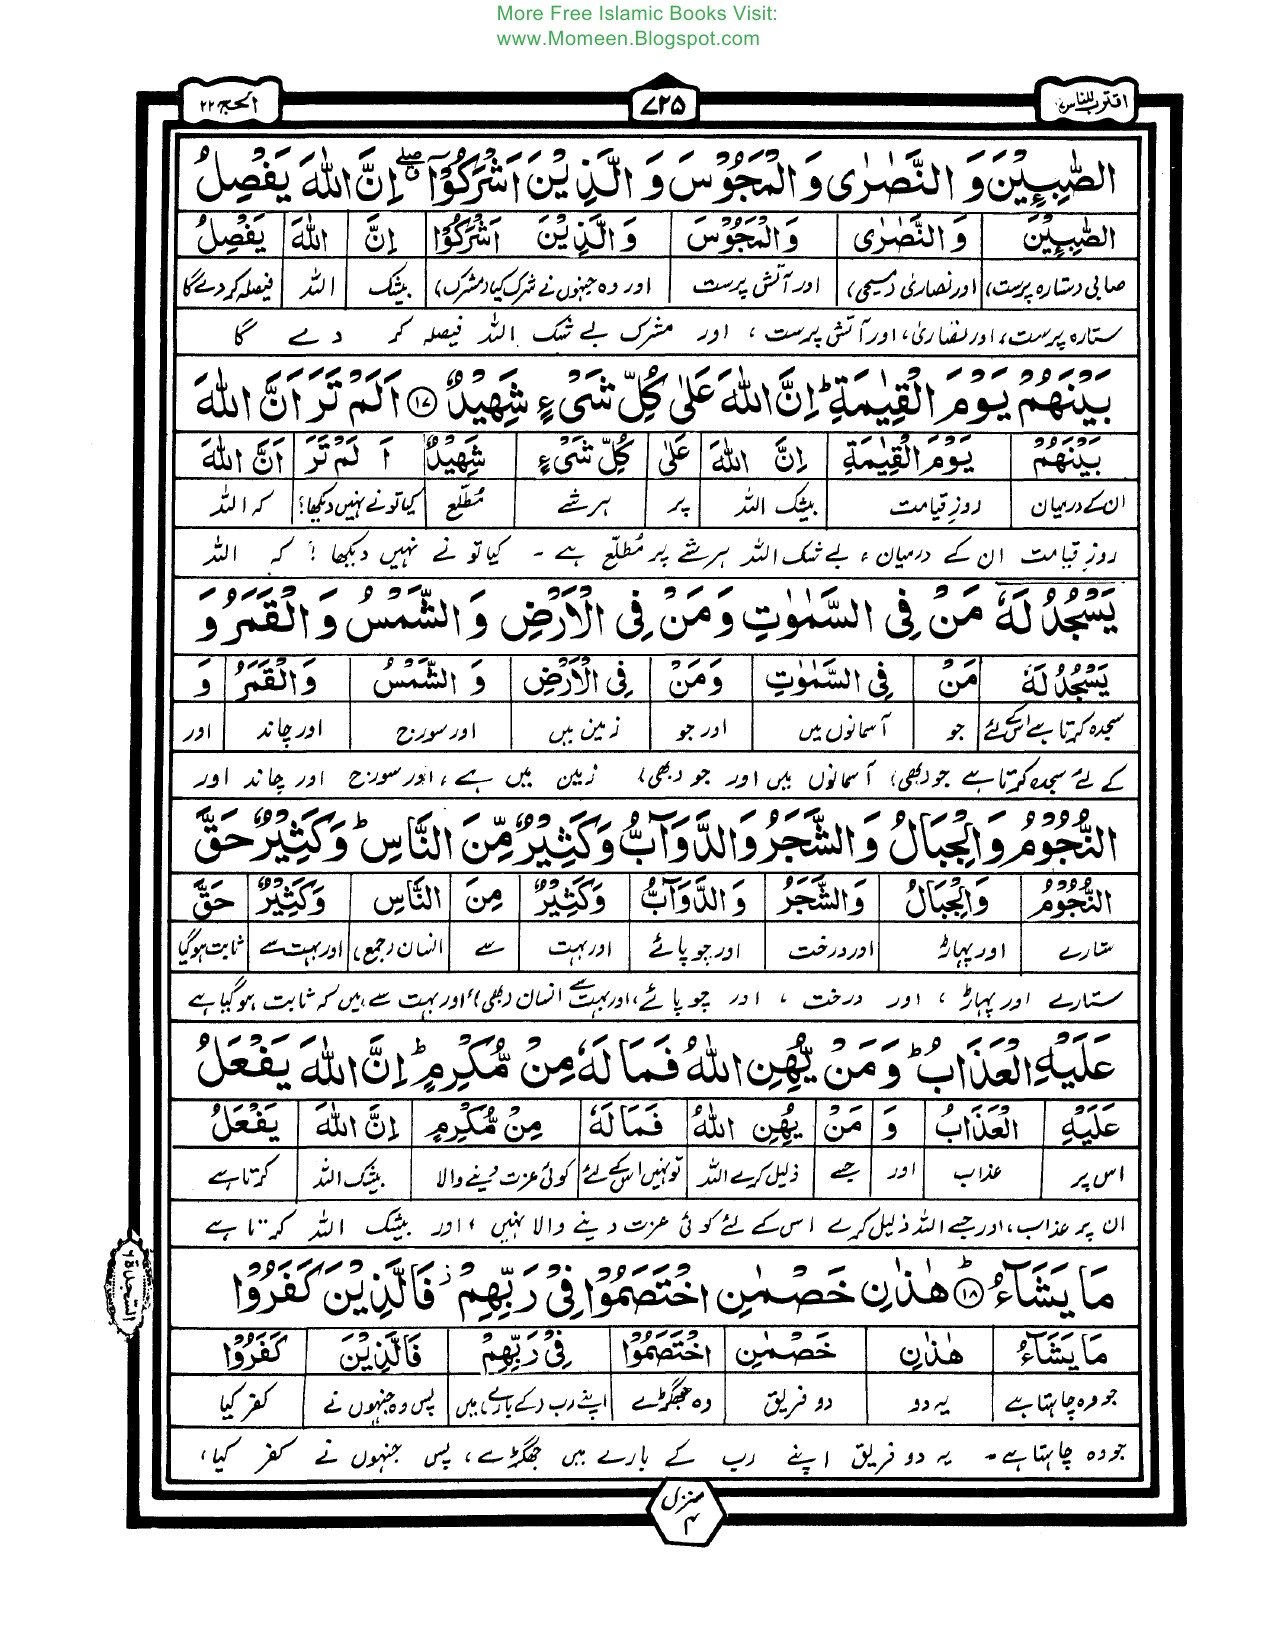 More Free Islamic Books Visit:
www.Momeen.Blogspot.com
اقترب للناس ۱۷
۷۲۵
الحج ۲۲
الصّٰبِـِٕیْنَ وَ النَّصٰرٰی وَ الْمَجُوْسَ وَ الَّذِیْنَ اَشْرَكُوْۤا ۖۗ اِنَّ اللّٰهَ یَفْصِلُ
الصّٰبِـِٕیْنَ وَ النَّصٰرٰی وَالْمَجُوْسَ وَالَّذِیْنَ اَشْرَكُوْۤا اِنَّ اللّٰهَ یَفْصِلُ
صابی (ستارہ پرست) اور نصاریٰ (مسیحی) اور آتش پرست اور وہ جنہوں نے شرک کیا (مشرک) بیشک اللہ فیصلہ کر دے گا
ستارہ پرست، اور نصاریٰ، اور آتش پرست ، اور مشرک بے شک اللہ فیصلہ کر دے گا
بَیْنَهُمْ یَوْمَ الْقِیٰمَةِ ؕ اِنَّ اللّٰهَ عَلٰی كُلِّ شَیْءٍ شَهِیْدٌ ۱۷ اَلَمْ تَرَ اَنَّ اللّٰهَ
بَیْنَهُمْ یَوْمَ الْقِیٰمَةِ اِنَّ اللّٰهَ عَلٰی كُلِّ شَیْءٍ شَهِیْدٌ اَ لَمْ تَرَ اَنَّ اللّٰهَ
ان کے درمیان روزِ قیامت بیشک اللہ پر ہر شے مُطّلع کیا تو نے نہیں دیکھا؟ کہ اللہ
روزِ قیامت ان کے درمیان ، بے شک اللہ ہر شے پر مُطّلع ہے ۔ کیا تو نے نہیں دیکھا ؟ کہ اللہ
یَسْجُدُ لَهٗ مَنْ فِی السَّمٰوٰتِ وَ مَنْ فِی الْاَرْضِ وَ الشَّمْسُ وَ الْقَمَرُ وَ
یَسْجُدُ لَهٗ مَنْ فِی السَّمٰوٰتِ وَمَنْ فِی الْاَرْضِ وَ الشَّمْسُ وَالْقَمَرُ وَ
سجدہ کرتا ہے اس کے لئے جو آسمانوں میں اور جو زمین میں اور سورج اور چاند اور
کے لئے سجدہ کرتا ہے جو (بھی) آسمانوں میں اور جو (بھی) زمین میں ہے ، اور سورج اور چاند اور
النُّجُوْمُ وَ الْجِبَالُ وَ الشَّجَرُ وَ الدَّوَآبُّ وَ كَثِیْرٌ مِّنَ النَّاسِ ؕ وَ كَثِیْرٌ حَقَّ
النُّجُوْمُ وَالْجِبَالُ وَالشَّجَرُ وَالدَّوَآبُّ وَكَثِیْرٌ مِنَ النَّاسِ وَكَثِیْرٌ حَقَّ
ستارے اور پہاڑ اور درخت اور چوپائے اور بہت سے انسان (جمع) اور بہت سے ثابت ہو گیا
ستارے اور پہاڑ ، اور درخت ، اور چوپائے، اور بہت سے انسان (بھی) اور بہت سے ہیں کہ ثابت ہو گیا ہے
عَلَیْهِ الْعَذَابُ ؕ وَ مَنْ یُّهِنِ اللّٰهُ فَمَا لَهٗ مِنْ مُّكْرِمٍ ؕ اِنَّ اللّٰهَ یَفْعَلُ
عَلَیْهِ الْعَذَابُ وَ مَنْ یُهِنِ اللّٰهُ فَمَا لَهٗ مِنْ مُّكْرِمٍ اِنَّ اللّٰهَ یَفْعَلُ
اس پر عذاب اور جسے ذلیل کرے اللہ تو نہیں اس کے لئے کوئی عزت دینے والا بیشک اللہ کرتا ہے
ان پر عذاب، اور جسے اللہ ذلیل کرے اس کے لئے کوئی عزت دینے والا نہیں ، اور بیشک اللہ کرتا ہے
مَا یَشَآءُ ؕ ۱۸ هٰذٰنِ خَصْمٰنِ اخْتَصَمُوْا فِیْ رَبِّهِمْ ؗ فَالَّذِیْنَ كَفَرُوْا
مَا یَشَآءُ هٰذٰنِ خَصْمٰنِ اخْتَصَمُوْا فِیْ رَبِّهِمْ فَالَّذِیْنَ كَفَرُوْا
جو وہ چاہتا ہے یہ دو دو فریق وہ جھگڑے اپنے رب (کے بارے) میں پس وہ جنہوں نے کفر کیا
جو وہ چاہتا ہے ۔ یہ دو فریق اپنے رب کے بارے میں جھگڑے، پس جنہوں نے کفر کیا،
السجدة ٦
منزل ۴